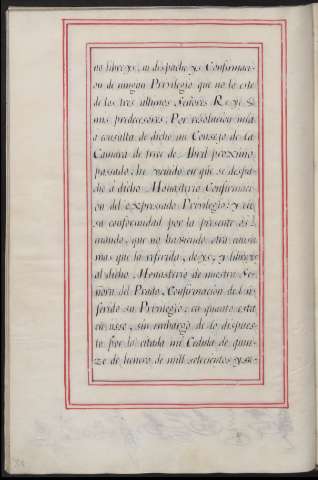 no libreys, ni despacheys Confirmaci-
on de ningun Privilegio que no lo este
de los tres ultimos Señores Reyes
mis predecesores. Por resolucion mia
a consulta de dicho mi Consejo de la
Camara de trece de Abril proximo
passado, he venido en que se despa-
che á dicho Monasterio Confirmaci-
on del expressado Privilegio: y en
su conformidad por la presente os
mando, que no haviendo otra causa
mas que la referida, deys, y libreys
al dicho Monasterio de nuestra Se-
ñora del Prado, Confirmacion del re-
ferido su Privilegio, en quanto esta
en usso, sin embargo de lo dispues-
to por la citada mi Cedula de quin-
ze de henero de mill setecientos y se-